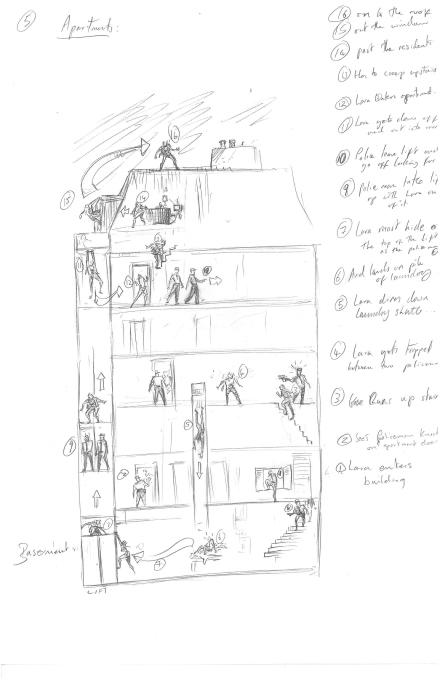 5 Apartments:
16 on to the roof
15 out the window
14 past the residents
13 Has to creep upstairs
12 Lara enters apartment.
11 Lara gets down off
and out into
10 Police leave lift and
go off looking for
9 Police men take lift
up with Lara on
of it
7 Lara must hide
the top of the lift
as the
6 And lands on pile
of laundry
5 Lara dives down
laundry shute...
4 Lara gets trapped
between two policemen
3 Runs up stairs
2 Sees Policeman
on apartment door
1 Lara enters
building
Basement
LIFT